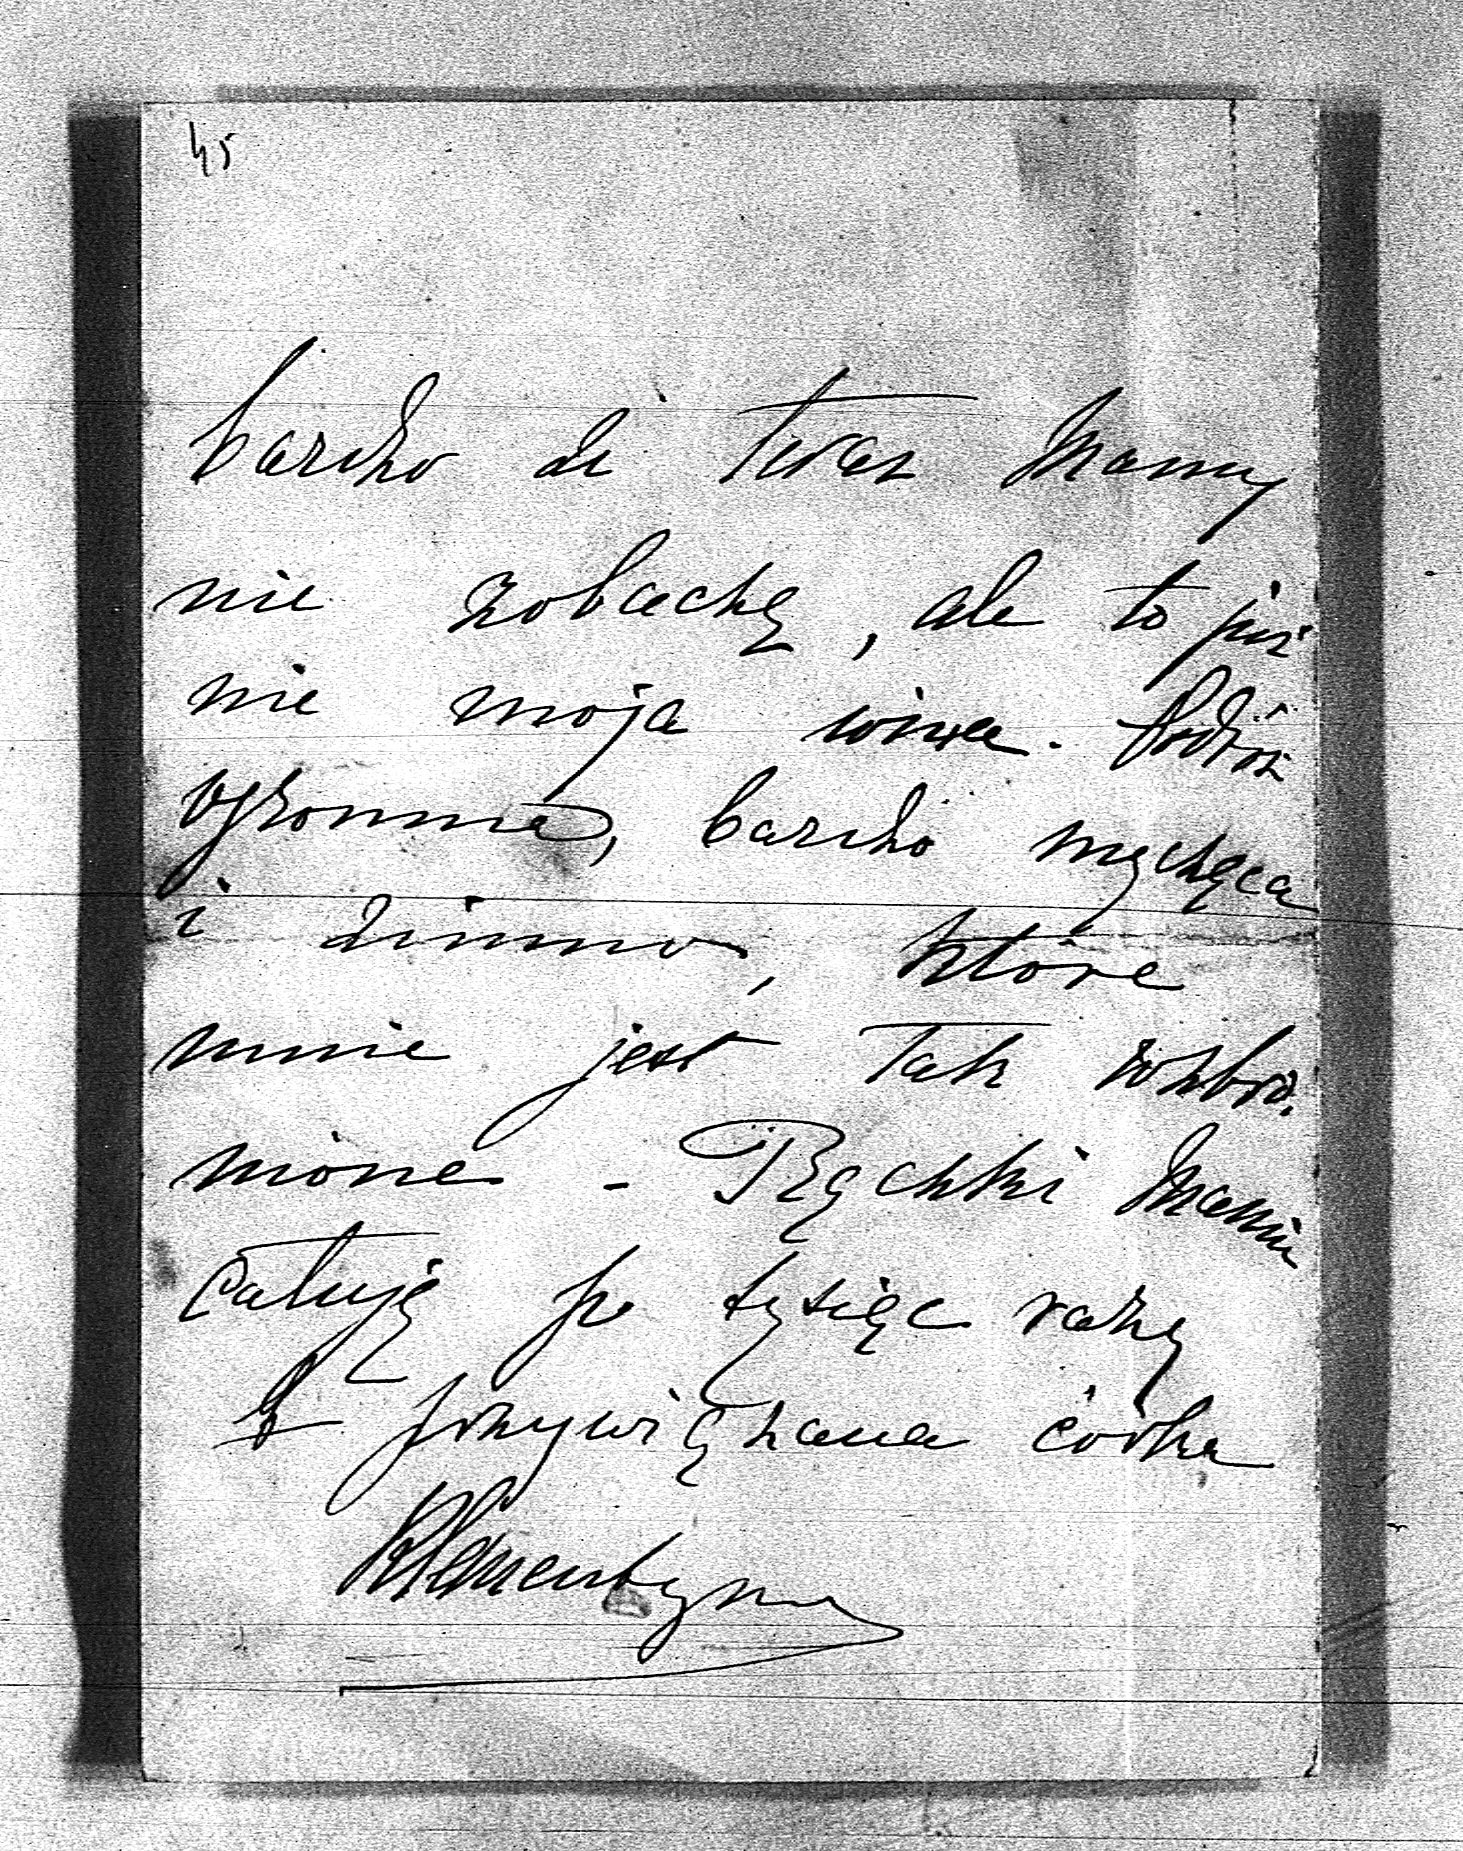 45
bardzo że teraz Mamy
nie zobaczę, ale to już
nie moja wina. Podróż
ogromna, bardzo męcząca
i zimno, które
mnie jest tak zabro,
nione - Rączki Mamie
całuję po tysiąc razy
przywiązana córka
Klementyna